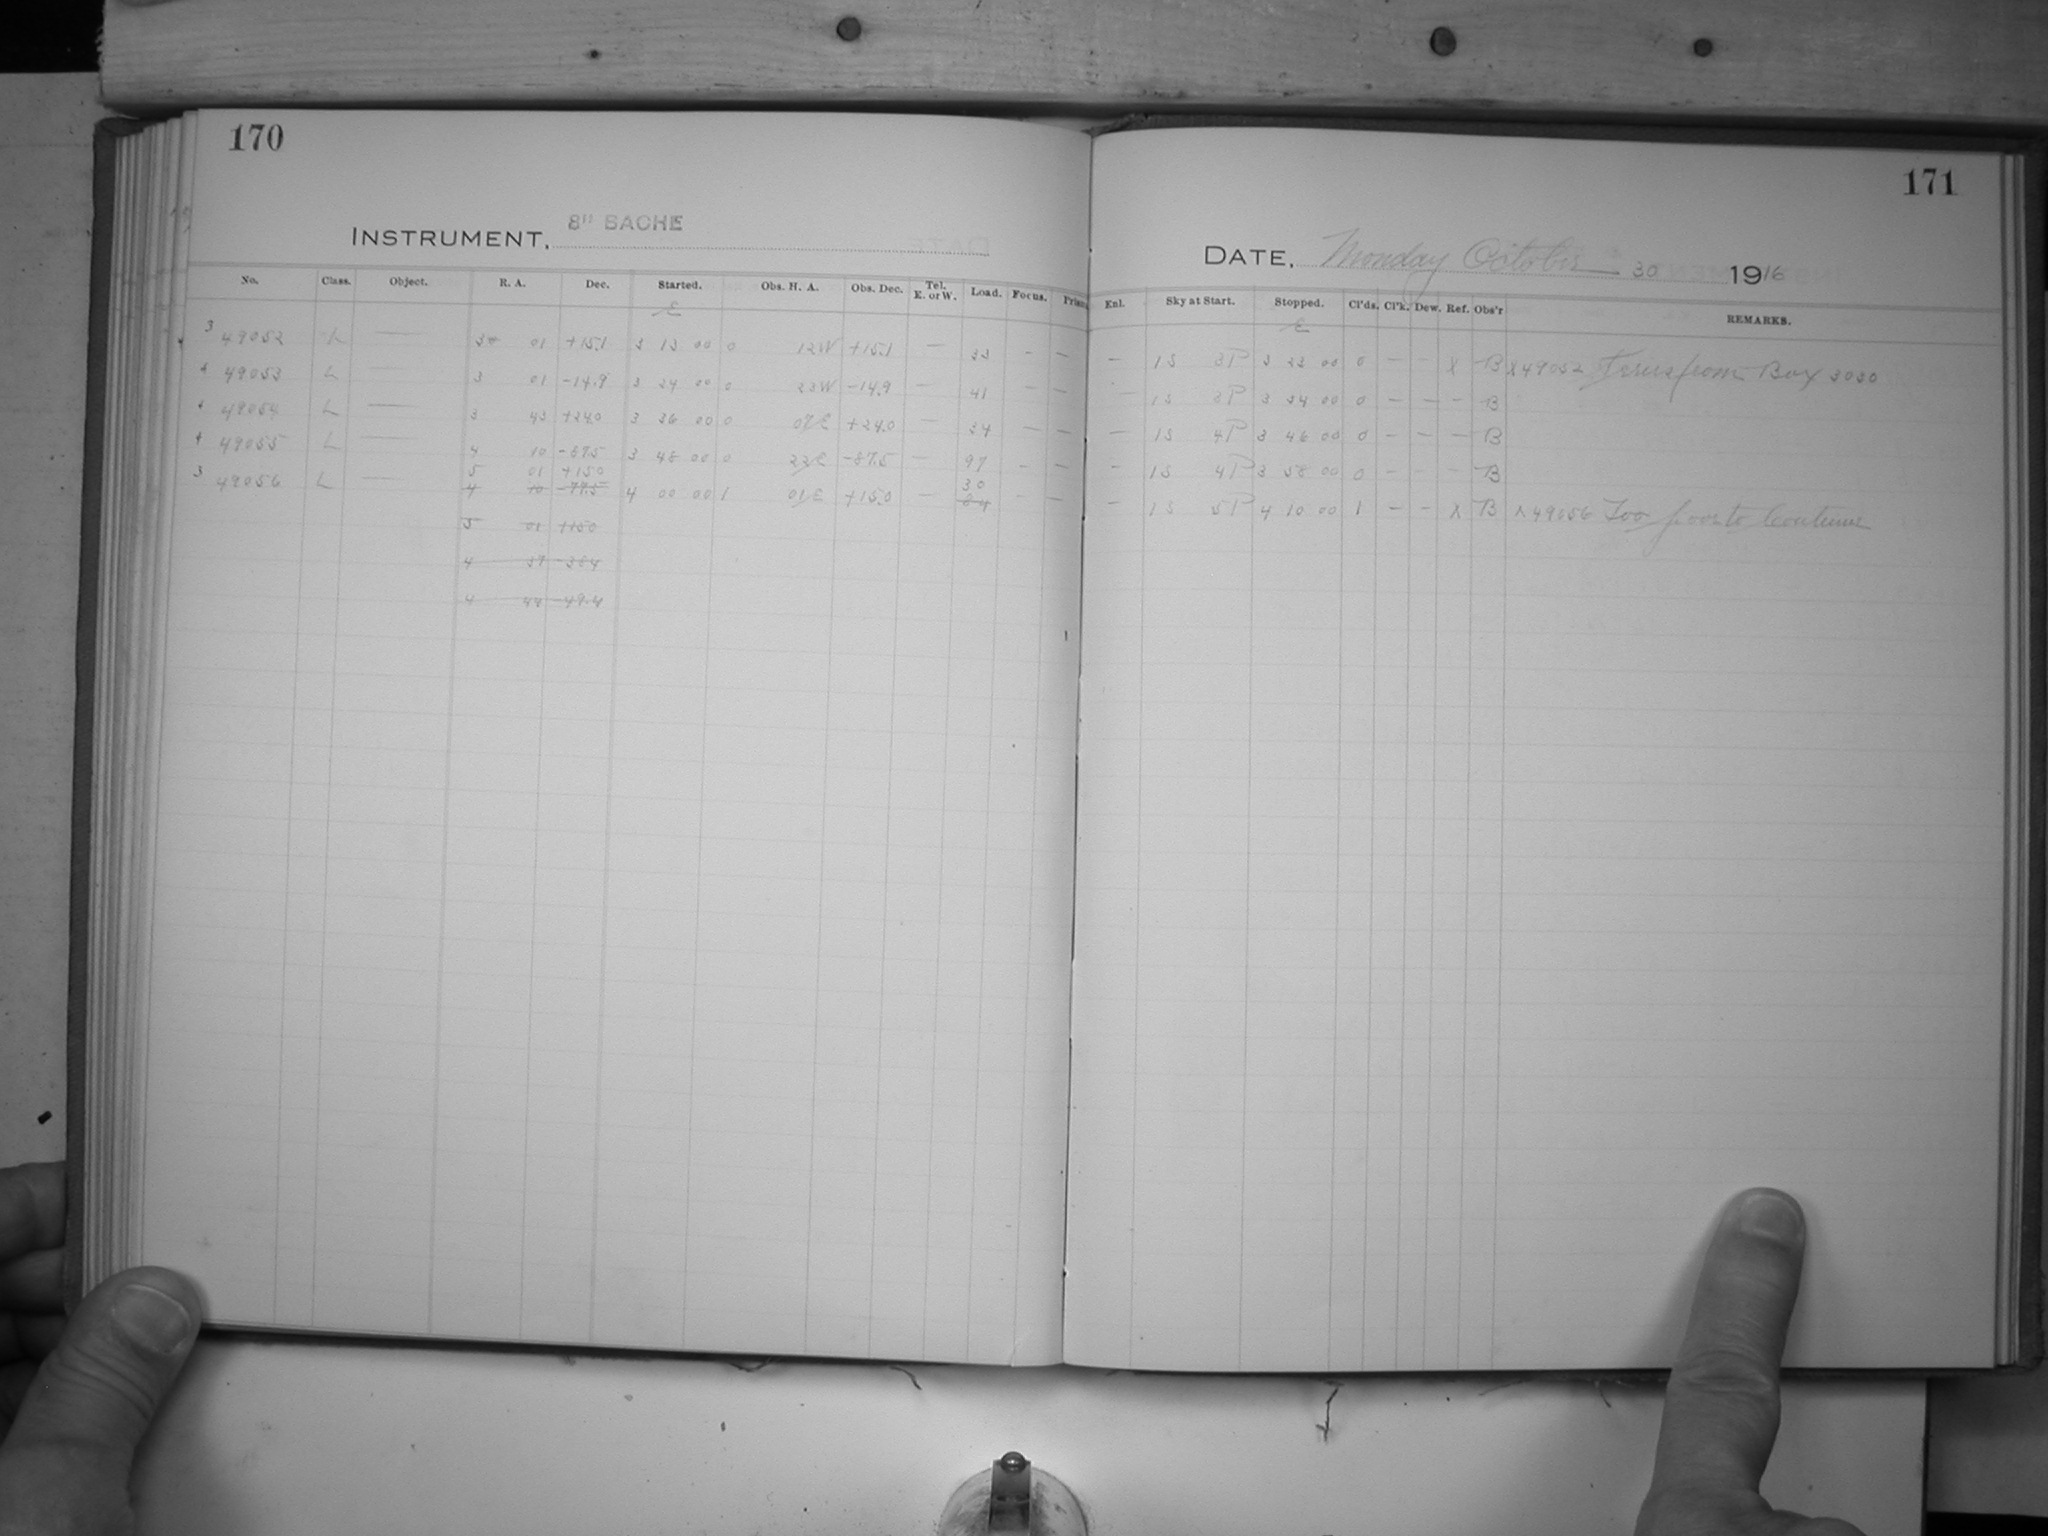 170
INSTRUMENT, 8" BACHE
No. Class. Object. R. A. Dec. Started. Obs. H. A. Obs. Dec. Tel. E. or W. Load. Focus. Prism
E
3 49052 L — 01 +15.1 3 13 00 0 12W +15.1 — 33 — —
4 49053 L — 3 01 -14.9 3 24 00 0 23W -14.9 — 41 — —
4 49054 L — 3 43 +24.0 3 36 00 0 07E +24.0 — 34 — —
4 49055 L — 4 10 -87.5 3 48 00 0 22E -87.5 — 97 — —
5 01 +15.0 30
3 49056 L — 4 10 4 00 00 1 01E +15.0 — 84 — —
5 01 +15.0
4 37 -38.4
4 44 -49.4
171
DATE, Monday October 30 1916
Enl. Sky at Start. Stopped. Cl'ds. Cl'k. Dew. Ref. Obs'r REMARKS.
E
— 1S 3P 3 23 00 0 — — X B X49052 from Box 3030
— 1S 3P 3 34 00 0 — — — B
— 1S 4P 3 46 00 0 — — — B
— 1S 4P 3 58 00 0 — — — B
— 1S 5P 4 10 00 1 — — X B X49056 Too poor to Continue